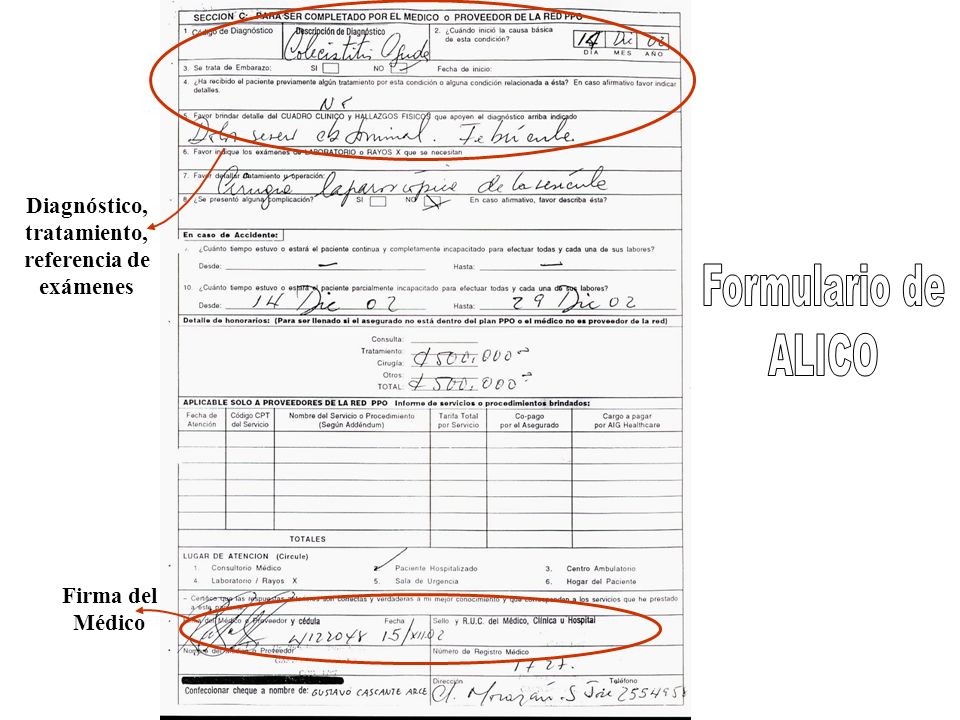 SECCION C: PARA SER COMPLETADO POR EL MEDICO o PROVEEDOR DE LA RED PPO
1 Código de Diagnóstico Descripción de Diagnóstico 2. ¿Cuándo inició la causa básica de esta condición? 14 Dic 02
Colecistitis Aguda DIA MES AÑO
3. Se trata de Embarazo: SI NO Fecha de inicio:
4. ¿Ha recibido el paciente previamente algún tratamiento por esta condición o alguna condición relacionada a ésta? En caso afirmativo favor indicar
detalles.
No
5. Favor brindar detalle del CUADRO CLINICO y HALLAZGOS FISICOS que apoyen el diagnóstico arriba indicado
abdominal. Febrícula.
6. Favor indique los exámenes de LABORATORIO o RAYOS X que se necesitan
7. Favor detallar tratamiento y operación:
Cirugía laparoscópica de la vesícula
8. ¿Se presentó alguna complicación? SI NO En caso afirmativo, favor describa ésta?
Diagnóstico,
tratamiento,
referencia de
exámenes
En caso de Accidente:
¿Cuánto tiempo estuvo o estará el paciente continua y completamente incapacitado para efectuar todas y cada una de sus labores?
Desde: — Hasta: —
10. ¿Cuánto tiempo estuvo o estará el paciente parcialmente incapacitado para efectuar todas y cada una de sus labores?
Desde: 14 Dic 02 Hasta: 29 Dic 02
Formulario de
ALICO
Detalle de honorarios: (Para ser llenado si el asegurado no está dentro del plan PPO o el médico no es proveedor de la red)
Consulta:
Tratamiento:
Cirugía: ¢500,000
Otros:
TOTAL: ¢500,000
APLICABLE SOLO A PROVEEDORES DE LA RED PPO Informe de servicios o procedimientos brindados:
Fecha de Atención Código CPT del Servicio Nombre del Servicio o Procedimiento (Según Addéndum) Tarifa Total por Servicio Co-pago por el Asegurado Cargo a pagar por AIG Healthcare
TOTALES
LUGAR DE ATENCION (Circule)
1. Consultorio Médico Paciente Hospitalizado 3. Centro Ambulatorio
4. Laboratorio / Rayos X 5. Sala de Urgencia 6. Hogar del Paciente
Firma del
Médico
– Certifico que las respuestas anteriores son correctas y verdaderas a mi mejor conocimiento y que corresponden a los servicios que he prestado
a este paciente.
Firma del Médico o Proveedor y cédula Fecha Sello y R.U.C. del Médico, Clínica u Hospital
15/XII/02
Nombre del Médico o Proveedor Número de Registro Médico
1727.
Dirección Teléfono
Confeccionar cheque a nombre de: GUSTAVO CASCANTE ARCE